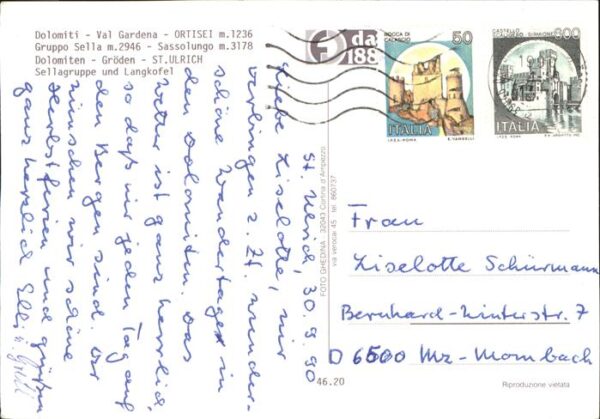 Dolomiti - Val Gardena - ORTISEI m.1236
Gruppo Sella m.2946 - Sassolungo m.3178
Dolomiten - Gröden - ST.ULRICH
Sellagruppe und Langkofel
da
188
ROCCA DI CALASCIO
50
ITALIA
I.P.Z.S.-ROMA
300
ITALIA
I.P.Z.S. ROMA
St. Ulrich, 30.9.90
Liebe Liselotte, wir
verbringen z. Zt wunder-
schöne Wandertage in
den Dolomiten. Das
Wetter ist ganz herrlich,
so daß wir jeden Tag auf
den Bergen sind. Wir
wünschen dir schöne
Herbstferien und grüßen
ganz herzlich Elli u.
FOTO GHEDINA 32043 Cortina d'Ampezzo
via verocai 45 tel. 860737
Frau
Liselotte Schürmann
Bernhard-Winterstr. 7
D 6500 Mz-Mombach
46.20
Riproduzione vietata